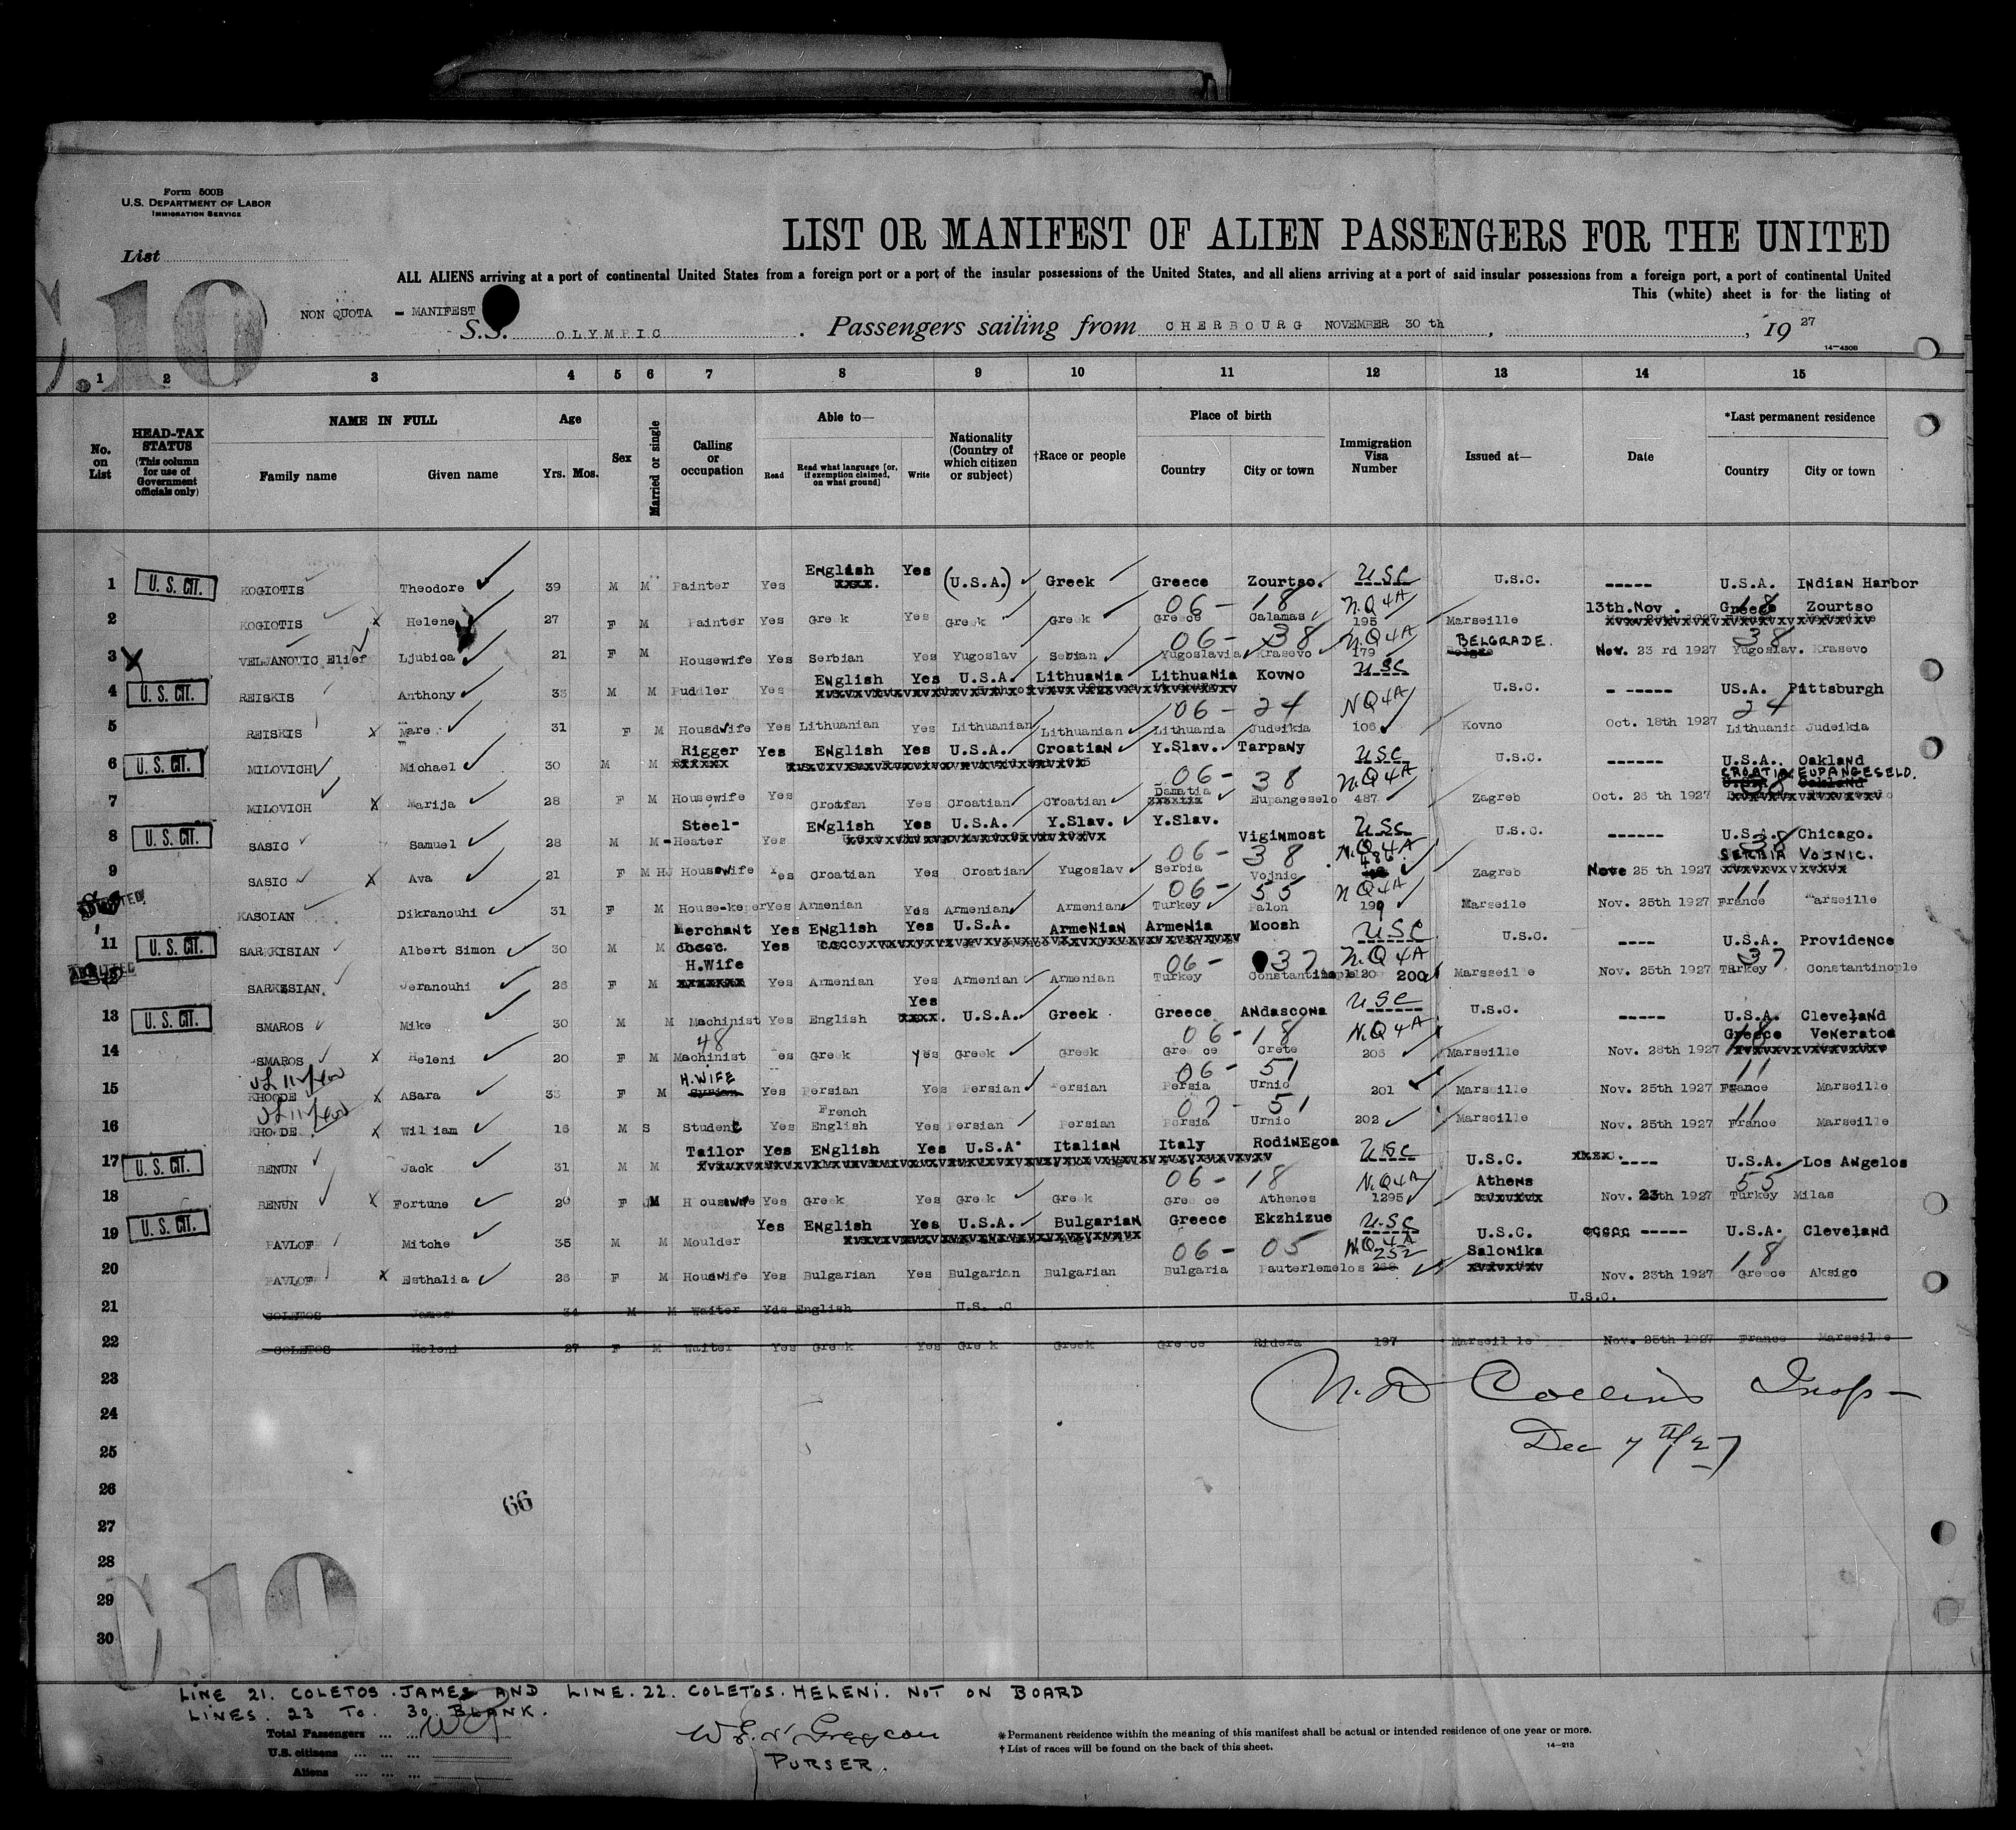 Form 500B
U.S. DEPARTMENT OF LABOR
IMMIGRATION SERVICE
List
LIST OR MANIFEST OF ALIEN PASSENGERS FOR THE UNITED
ALL ALIENS arriving at a port of continental United States from a foreign port or a port of the insular possessions of the United States, and all aliens arriving at a port of said insular possessions from a foreign port, a port of continental United
This (white) sheet is for the listing of
C.10
NON QUOTA - MANIFEST
S.S. OLYMPIC. Passengers sailing from CHERBOURG NOVEMBER 30 th, , 19 27
14-430B
1 2 3 4 5 6 7 8 9 10 11 12 13 14 15
No. on List
HEAD-TAX STATUS (This column for use of Government officials only)
NAME IN FULL
Family name Given name
Age
Yrs. Mos.
Sex
Married or single
Calling or occupation
Able to—
Read Read what language [or, if exemption claimed, on what ground] Write
Nationality (Country of which citizen or subject)
†Race or people
Place of birth
Country City or town
Immigration Visa Number
Issued at—
Date
*Last permanent residence
Country City or town
1 U. S. CIT. KOGIOTIS Theodore 39 M M Painter Yes English Yes (U.S.A.) Greek Greece Zourtso. USC U.S.C. ----- U.S.A. Indian Harbor
06 - 18 N.Q4A 13th.Nov. Greece Zourtso 18
2 KOGIOTIS x Helene 27 F M Painter Yes Greek Yes Greek Greek Greece Calamas 195 Marseille
06 - 38 N.Q4A BELGRADE. 38
3 X VELJANOVIC Elief Ljubica 21 F M Housewife Yes Serbian Yes Yugoslav Serbian Yugoslavia Krasevo 179 Nov. 23 rd 1927 Yugoslav. Krasevo
4 U. S. CIT. REISKIS Anthony 33 M M Puddler Yes English Yes U.S.A. Lithuania Lithuania Kovno USC U.S.C. - ----- US.A. Pittsburgh
06 - 24 NQ4A 24
5 REISKIS x Mare 31 F M Housdwife Yes Lithuanian Yes Lithuanian Lithuanian Lithuania Judeikia 106 Kovno Oct. 18th 1927 Lithuania Judeikia
6 U. S. CIT. MILOVICH Michael 30 M M Rigger Yes English Yes U.S.A. Croatian Y.Slav. Tarpany USC U.S.C. ------ U.S.A. Oakland
06 - 38 N.Q4A CROATIA EUPANGESELO.
7 MILOVICH x Marija 28 F M Housewife Yes Croatian Yes Croatian Croatian Damatia Eupangeselo 487 Zagreb Oct. 26 th 1927
8 U. S. CIT. SASIC Samuel 28 M M Steel-Heater Yes English Yes U.S.A. Y.Slav. Y.Slav. Viginmost USC U.S.C. ------ U.S.A. Chicago.
06 - 38 N.Q4A 486 38 SERBIA VOJNIC.
9 SASIC x Ava 21 F M Housewife Yes Croatian Yes Croatian Yugoslav Serbia Vojnic Zagreb Nove 25 th 1927
06 - 55 NQ4A 11
KASOIAN Dikranouhi 31 F M House-keper Yes Armenian Yes Armenian Armenian Turkey Palon 199 Marseile Nov. 25th 1927 France Marseille
11 U. S. CIT. SARKISIAN Albert Simon 30 M M Merchant Yes English Yes U.S.A. Armenian Armenia Moosh USC U.S.C. ---- U.S.A. Providence
ADMITTED 06 - 37 N.Q4A 37
SARKESIAN Jeranouhi 26 F M H.Wife Yes Armenian Yes Armenian Armenian Turkey Constantinople 200 Marsseille Nov. 25th 1927 Turkey Constantinople
13 U. S. CIT. SMAROS Mike 30 M M Machinist Yes English Yes U.S.A. Greek Greece Andascona USC U.S.C. ----- U.S.A. Cleveland
48 06 - 18 N.Q4A Greece Veneratos 18
14 SMAROS x Heleni 20 F M Machinist Yes Greek Yes Greek Greek Greece Crete 206 Marseille Nov. 28th 1927
H.WIFE 06 - 51 11
15 KHOODE x Asara 33 F M Yes Persian Yes Persian Persian Persia Urnio 201 Marseille Nov. 25th 1927 France Marseille
French 07 - 51 11
16 KHOODE x William 16 M S Student Yes English Yes Persian Persian Persia Urnio 202 Marseille Nov. 25th 1927 France Marseille
17 U. S. CIT. BENUN Jack 31 M M Tailor Yes English Yes U.S.A. Italian Italy Rodinegoa USC U.S.C. ---- U.S.A. Los Angelos
06 - 18 N.Q4A Athens 55
18 BENUN x Fortune 20 F M Housewife Yes Greek Yes Greek Greek Greece Athenes 1295 Nov. 23th 1927 Turkey Milas
19 U. S. CIT. PAVLOF Mitche 35 M M Moulder Yes English Yes U.S.A. Bulgarian Greece Ekzhizue U.S.C U.S.C. ----- U.S.A. Cleveland
06 - 05 N.Q4A 252 Salonika 18
20 PAVLOF x Esthalia 26 F M Houswife Yes Bulgarian Yes Bulgarian Bulgarian Bulgaria Pauterlemelos Nov. 23th 1927 Greece Aksigo
21 COLETOS James 34 M M Waiter Yds English U.S. .C U.S.C.
22 COLETOS Heleni 27 F M Waiter Yes Greek Yes Greek Greek Greece Ridera 197 Marseille Nov. 25th 1927 France Marseille
23
24
25
26
27
28
29
30
N.D Collins Insp-
Dec 7th/27
66
C10
LINE 21. COLETOS. JAMES AND LINE. 22. COLETOS. HELENI. NOT ON BOARD
LINES. 23 TO. 30 BLANK.
Total Passengers
U.S. citizens
Aliens
PURSER.
* Permanent residence within the meaning of this manifest shall be actual or intended residence of one year or more.
† List of races will be found on the back of this sheet.
14-213